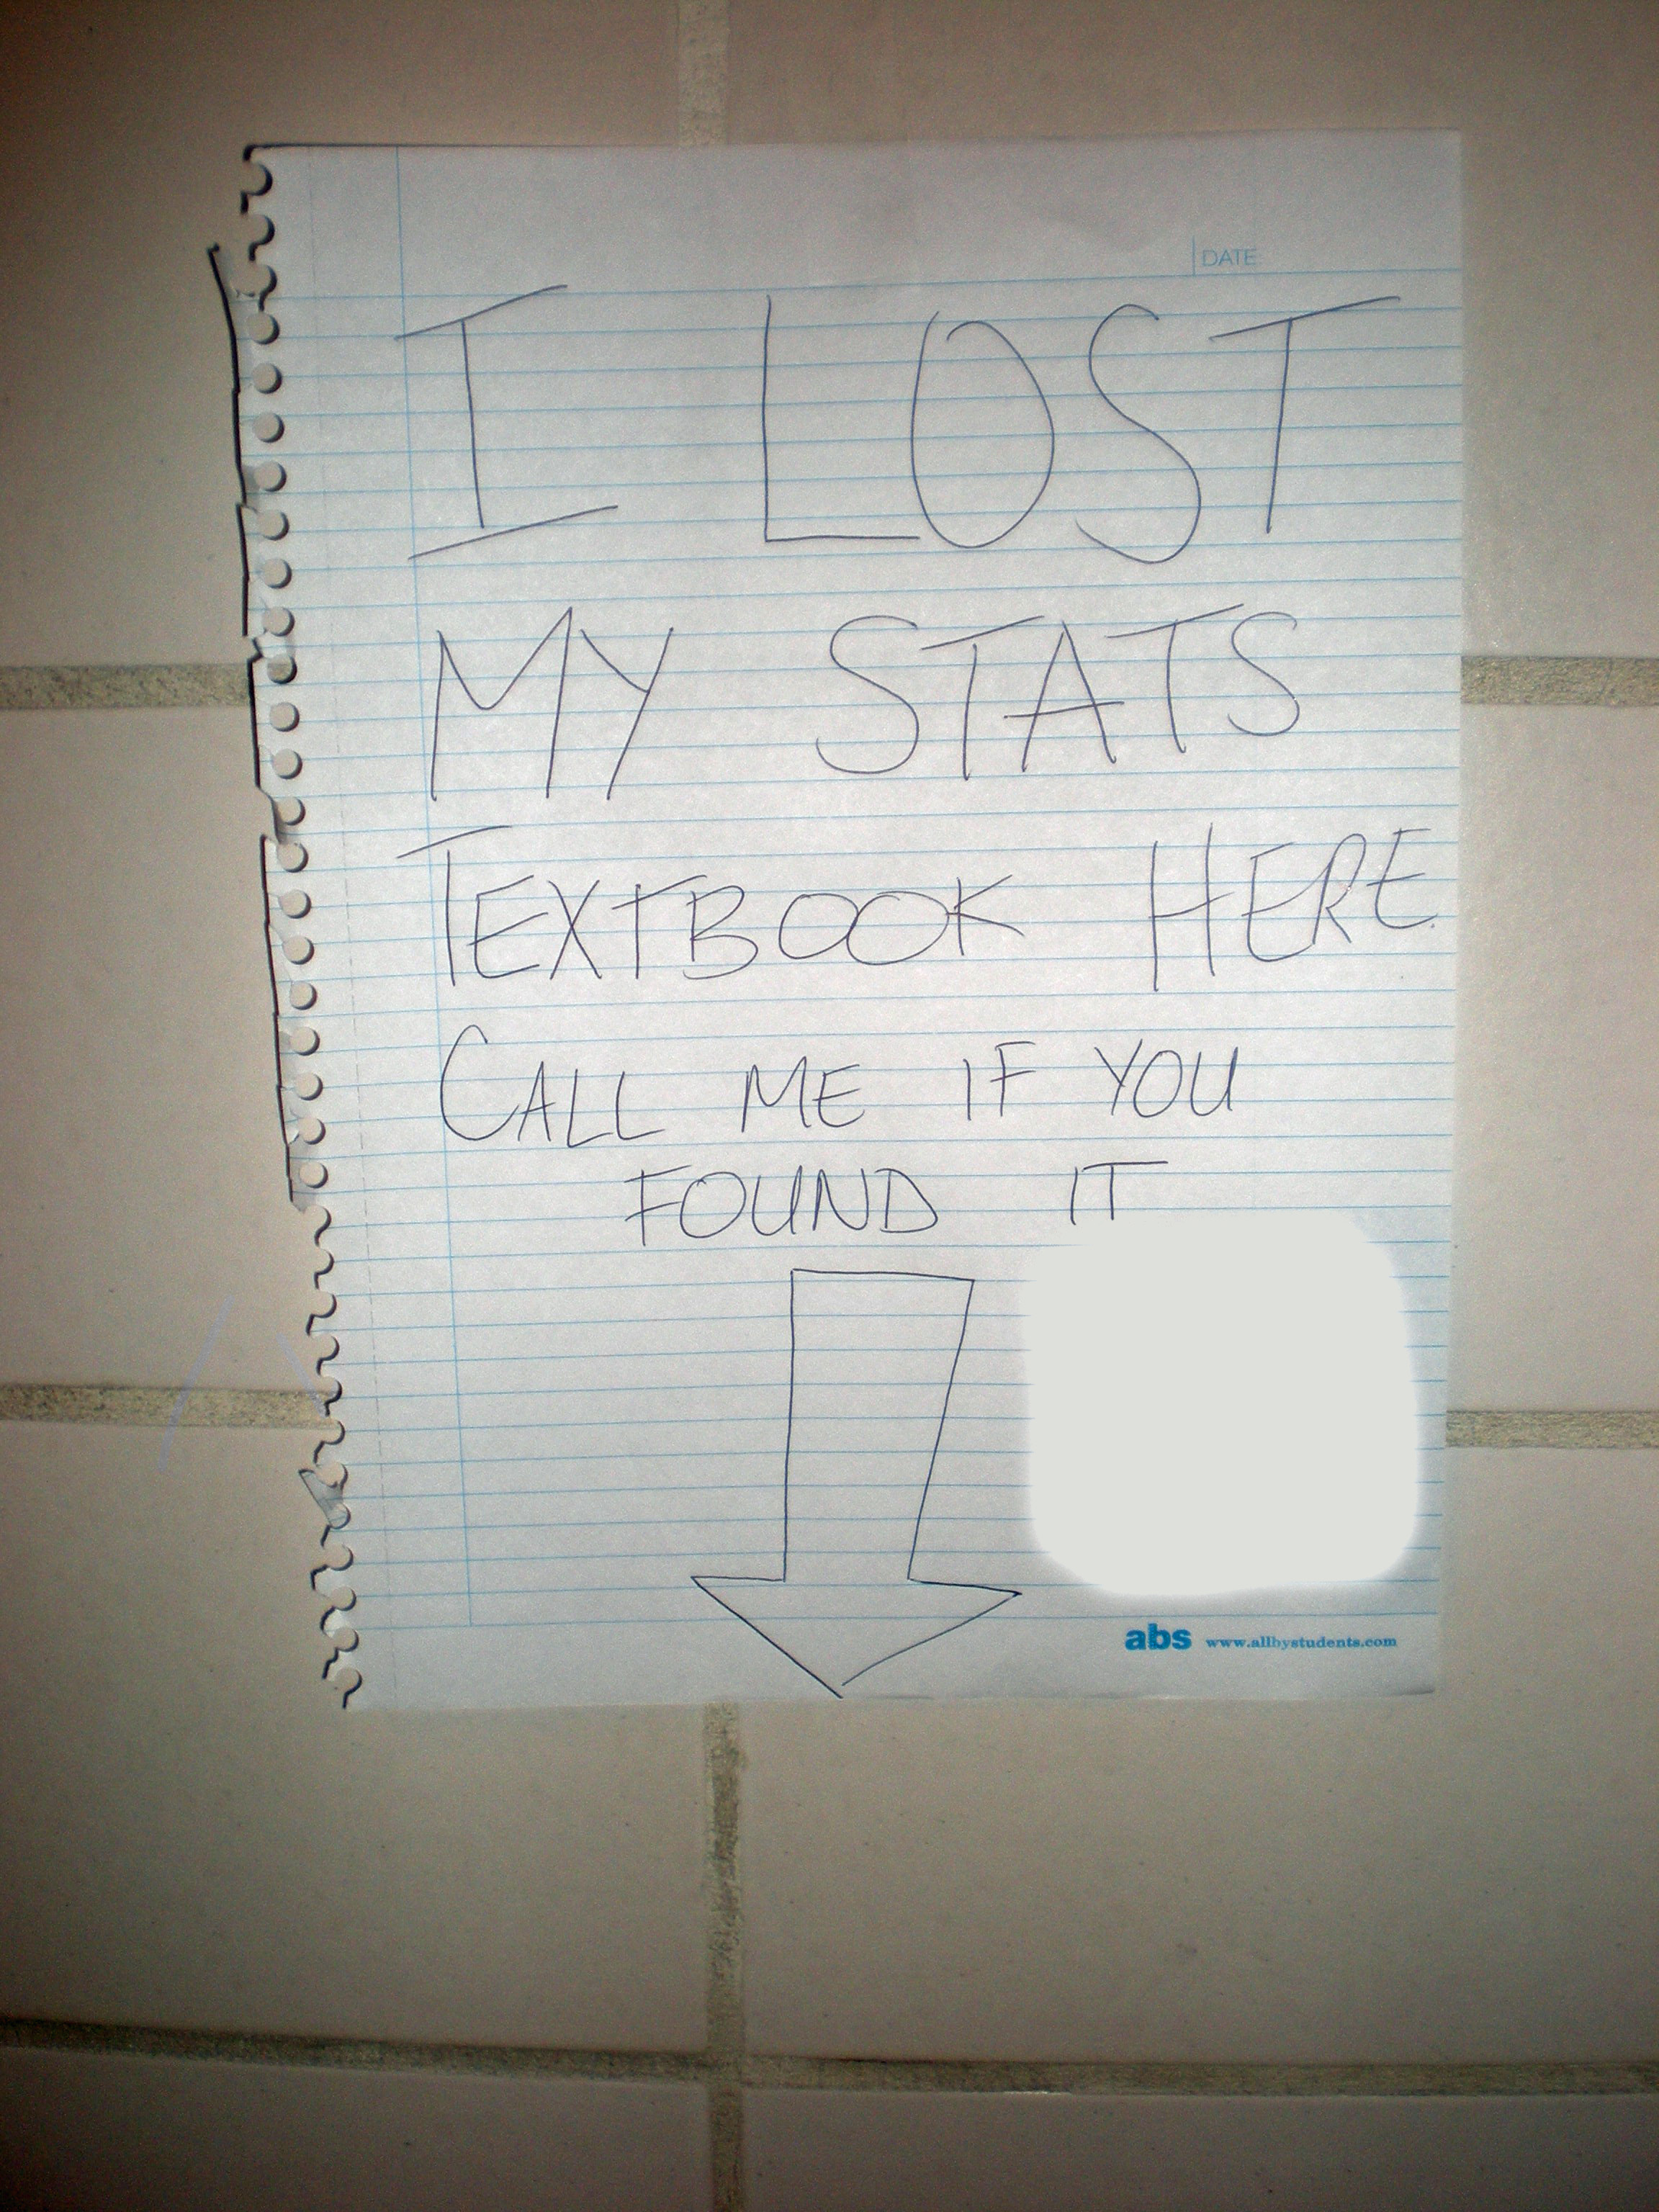 DATE
I LOST
MY STATS
TEXTBOOK HERE.
CALL ME IF YOU
FOUND IT
abs www.allbystudents.com